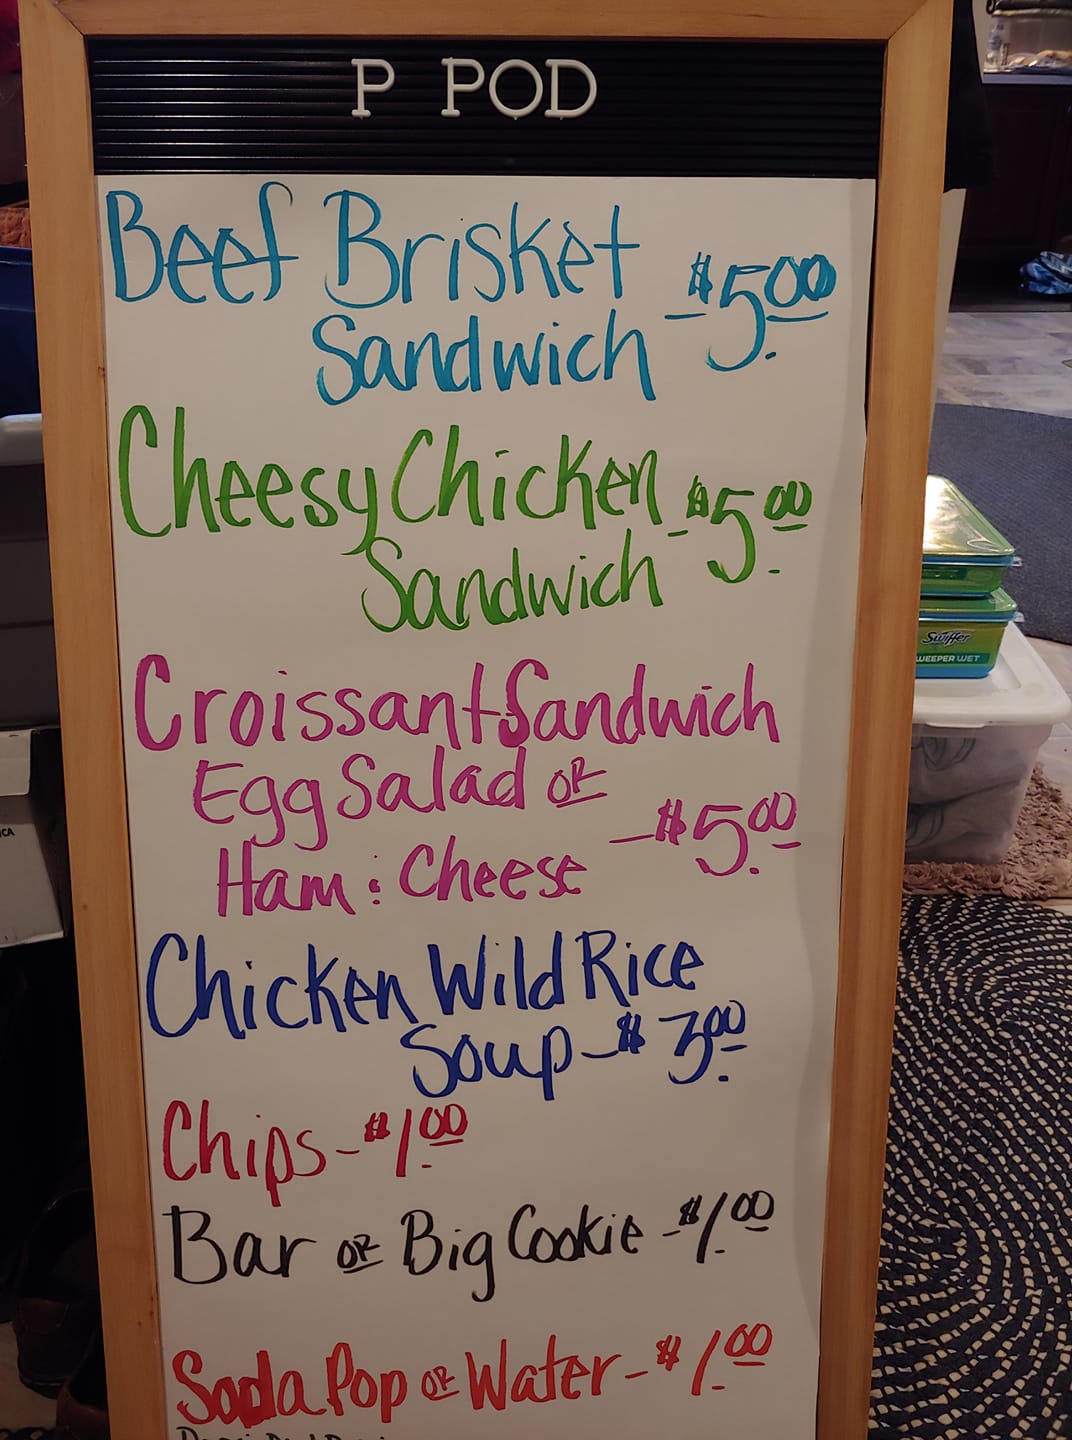 P POD
Beef Brisket
Sandwich - $5.00
Cheesy Chicken
Sandwich - $5.00
Croissant Sandwich
Egg Salad OR
Ham & Cheese - $5.00
Chicken Wild Rice
Soup - $3.00
Chips - $1.00
Bar OR Big Cookie - $1.00
Soda Pop OR Water - $1.00
Swiffer
WEEPER WET